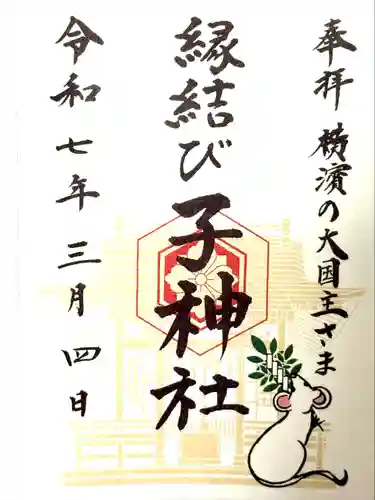 奉拝 横濱の大国主さま
縁結び
子神社
令和七年三月四日